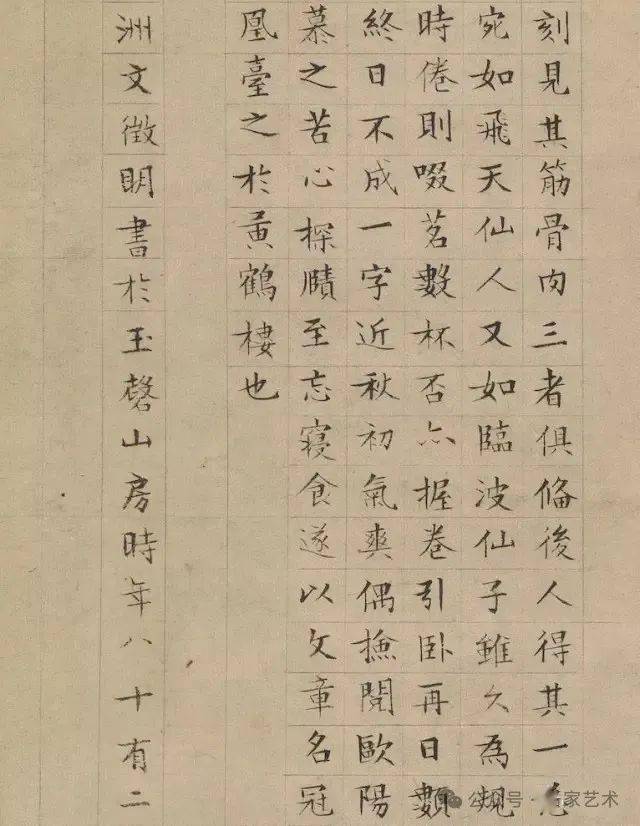 刻見其筋骨肉三者俱俻後人得其一忽
宛如飛天仙人又如臨波仙子雖久為規
時倦則啜茗數杯否亦握卷引卧再日數
終日不成一字近秋初氣爽偶撿閱歐陽
慕之苦心探賾至忘寢食遂以文章名冠
凰臺之於黃鶴樓也
洲文徵明書於玉磬山房時年八十有二
公众号·名家艺术